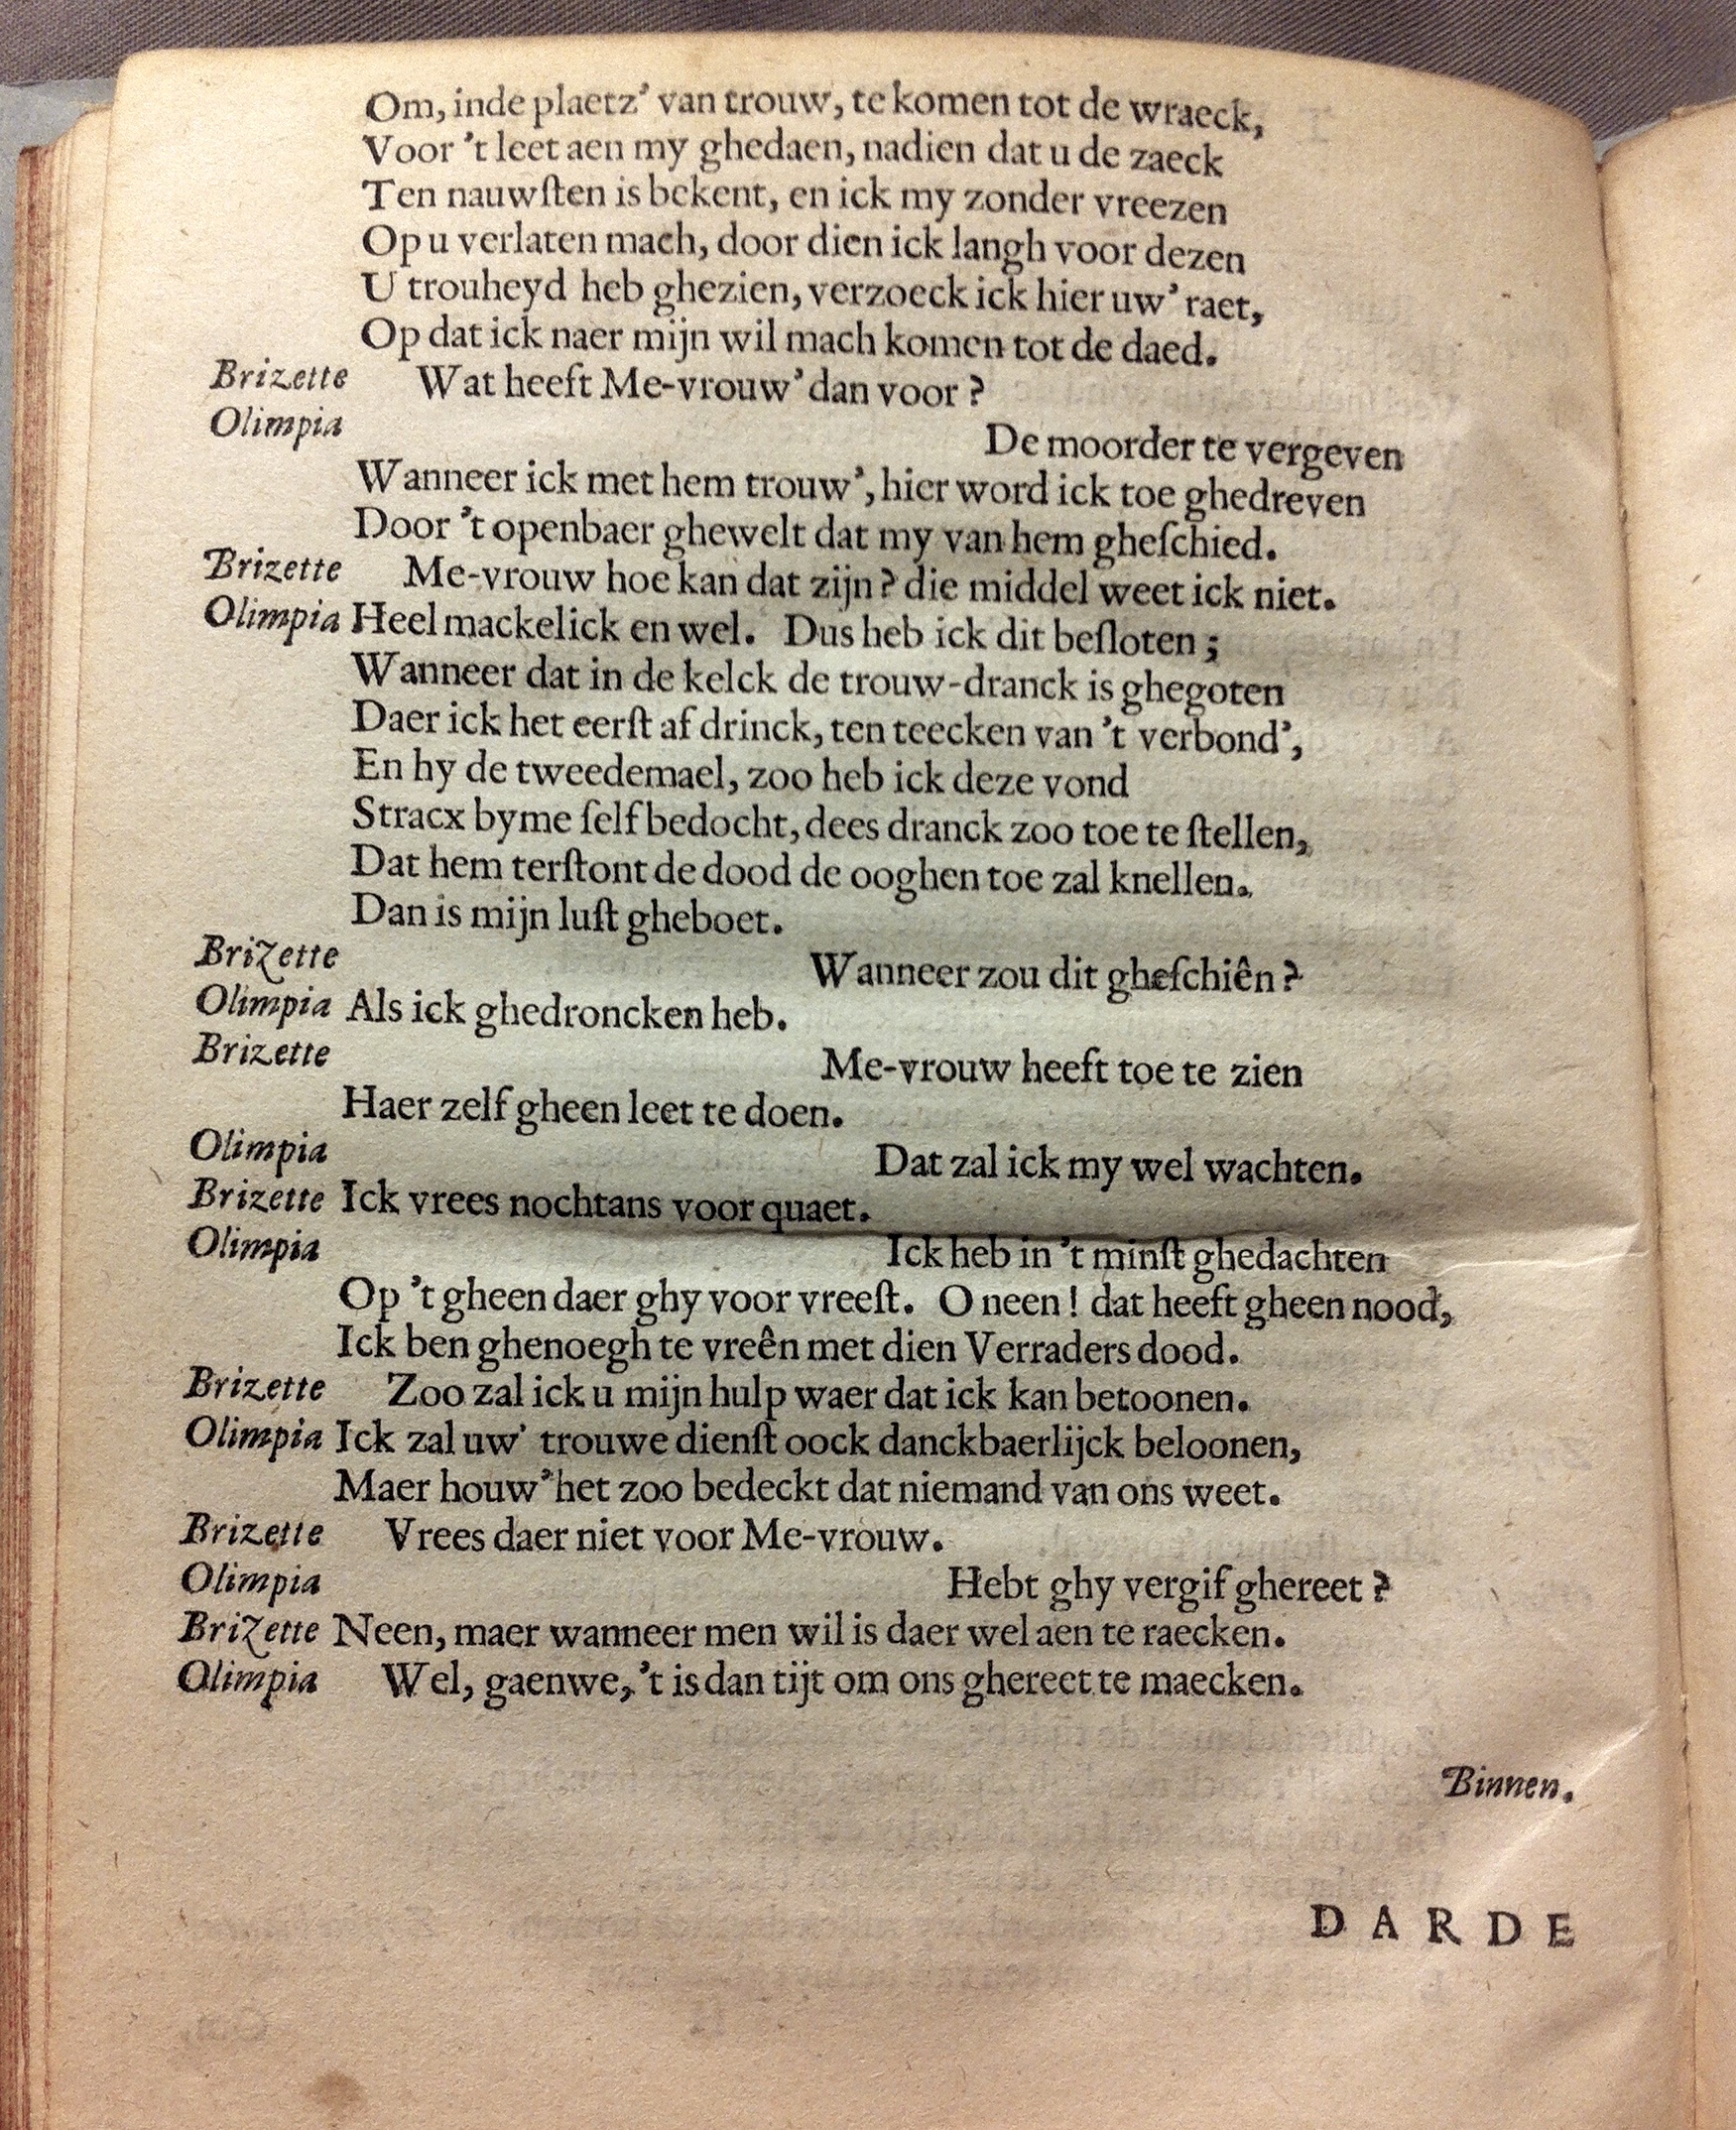 Om, inde plaetz' van trouw, te komen tot de wraeck,
Voor 't leet aen my ghedaen, nadien dat u de zaeck
Ten nauwſten is bekent, en ick my zonder vreezen
Op u verlaten mach, door dien ick langh voor dezen
U trouheyd heb ghezien, verzoeck ick hier uw' raet,
Op dat ick naer mijn wil mach komen tot de daed.
Brizette Wat heeft Me-vrouw' dan voor?
Olimpia De moorder te vergeven
Wanneer ick met hem trouw', hier word ick toe ghedreven
Door 't openbaer ghewelt dat my van hem gheſchied.
Brizette Me-vrouw hoe kan dat zijn? die middel weet ick niet.
Olimpia Heel mackelick en wel. Dus heb ick dit beſloten;
Wanneer dat in de kelck de trouw-dranck is ghegoten
Daer ick het eerſt af drinck, ten teecken van 't verbond',
En hy de tweedemael, zoo heb ick deze vond
Stracx byme ſelf bedocht, dees dranck zoo toe te ſtellen,
Dat hem terſtont de dood de ooghen toe zal knellen.
Dan is mijn luſt gheboet.
Brizette Wanneer zou dit gheſchiên?
Olimpia Als ick ghedroncken heb.
Brizette Me-vrouw heeft toe te zien
Haer zelf gheen leet te doen.
Olimpia Dat zal ick my wel wachten.
Brizette Ick vrees nochtans voor quaet.
Olimpia Ick heb in 't minſt ghedachten
Op 't gheen daer ghy voor vreeſt. O neen! dat heeft gheen nood,
Ick ben ghenoegh te vreên met dien Verraders dood.
Brizette Zoo zal ick u mijn hulp waer dat ick kan betoonen.
Olimpia Ick zal uw' trouwe dienſt oock danckbaerlijck beloonen,
Maer houw' het zoo bedeckt dat niemand van ons weet.
Brizette Vrees daer niet voor Me-vrouw.
Olimpia Hebt ghy vergif ghereet?
Brizette Neen, maer wanneer men wil is daer wel aen te raecken.
Olimpia Wel, gaenwe, 't is dan tijt om ons ghereet te maecken.
Binnen.
DARDE